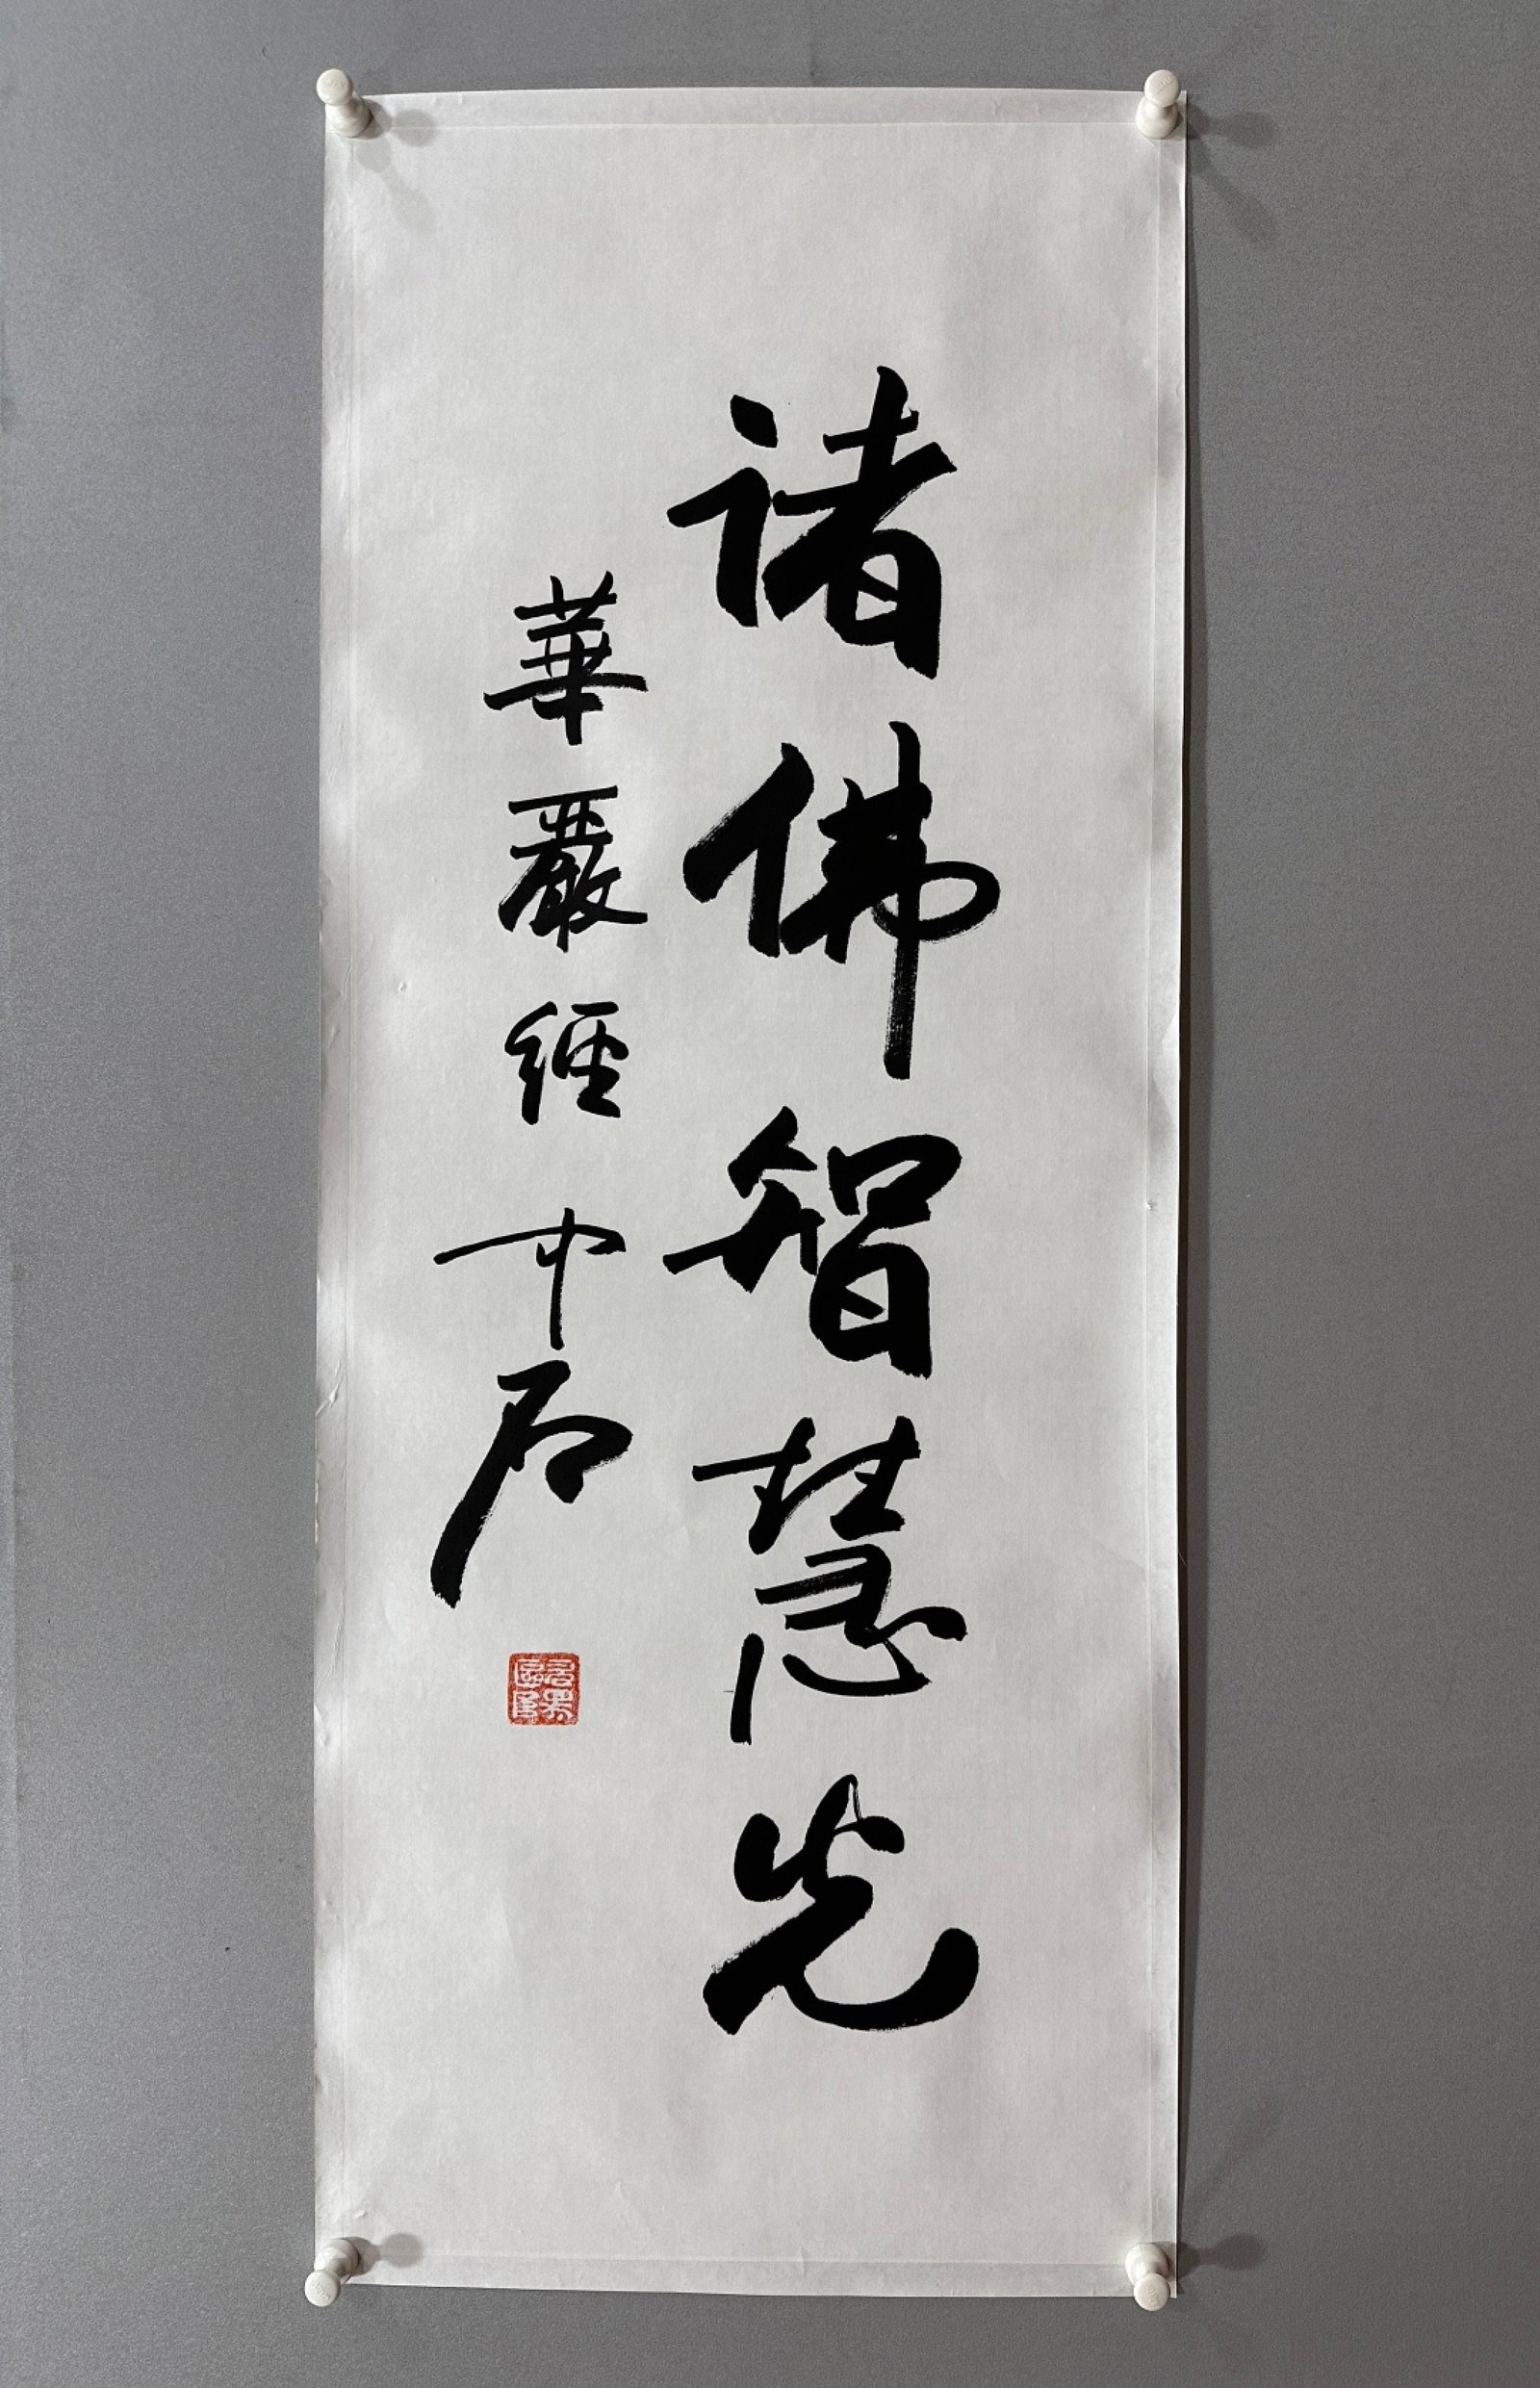 诸佛智慧光
華嚴經 中石